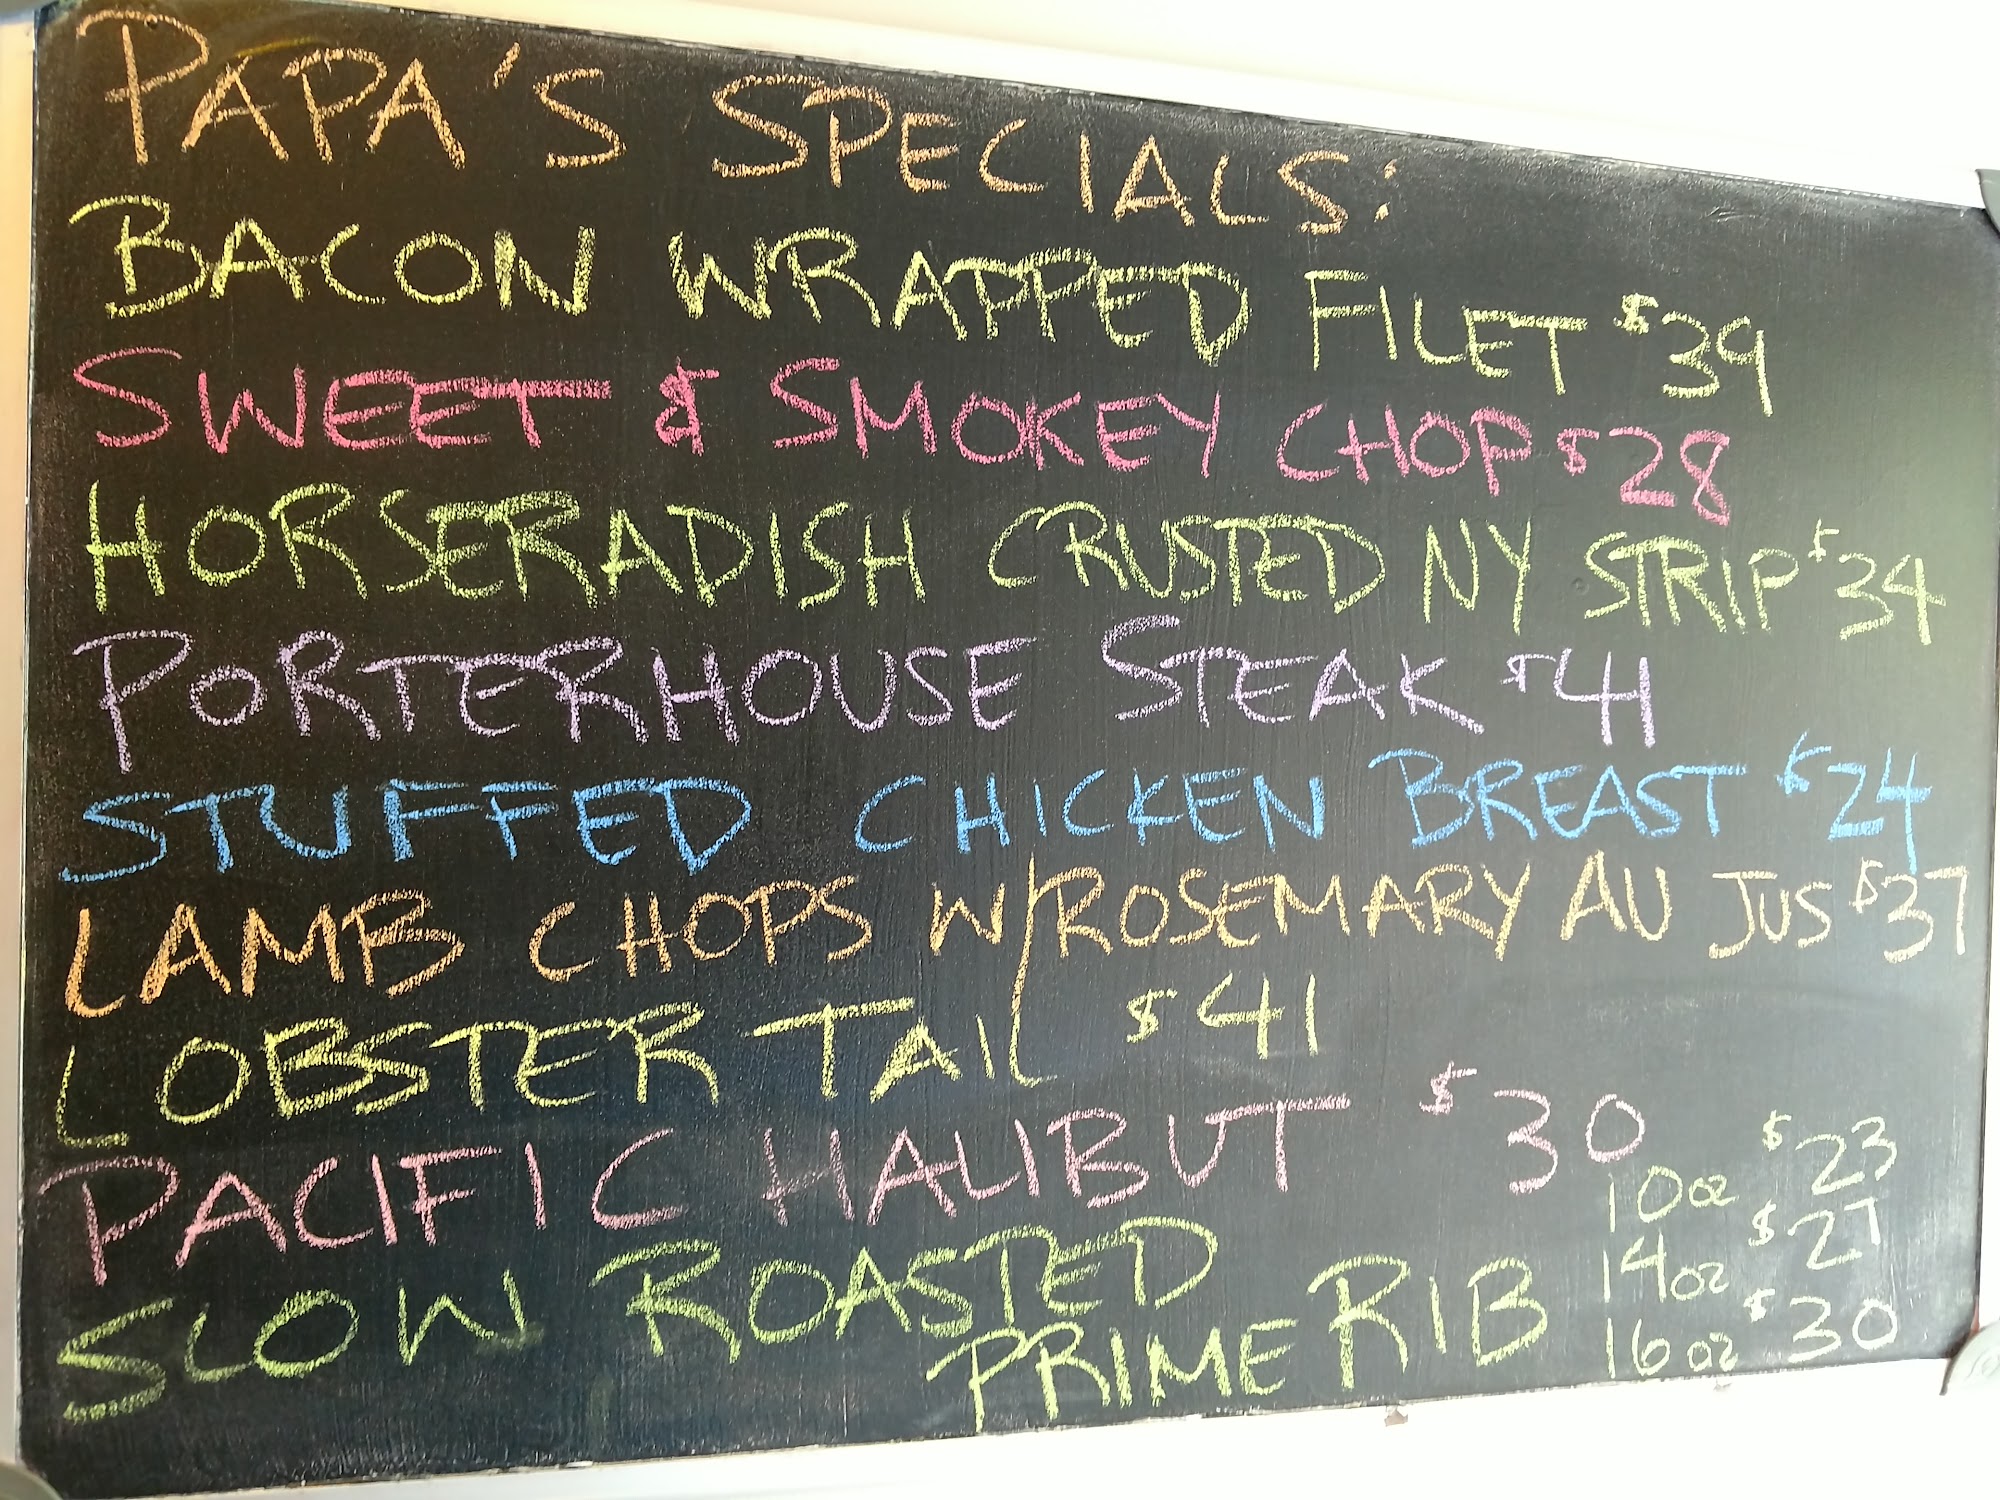 PAPA'S SPECIALS:
BACON WRAPPED FILET $39
SWEET & SMOKEY CHOP $28
HORSERADISH CRUSTED NY STRIP $34
PORTERHOUSE STEAK $41
STUFFED CHICKEN BREAST $24
LAMB CHOPS W/ROSEMARY AU JUS $37
LOBSTER TAIL $41
PACIFIC HALIBUT $30
SLOW ROASTED
PRIME RIB
10oz $23
14oz $27
16oz $30